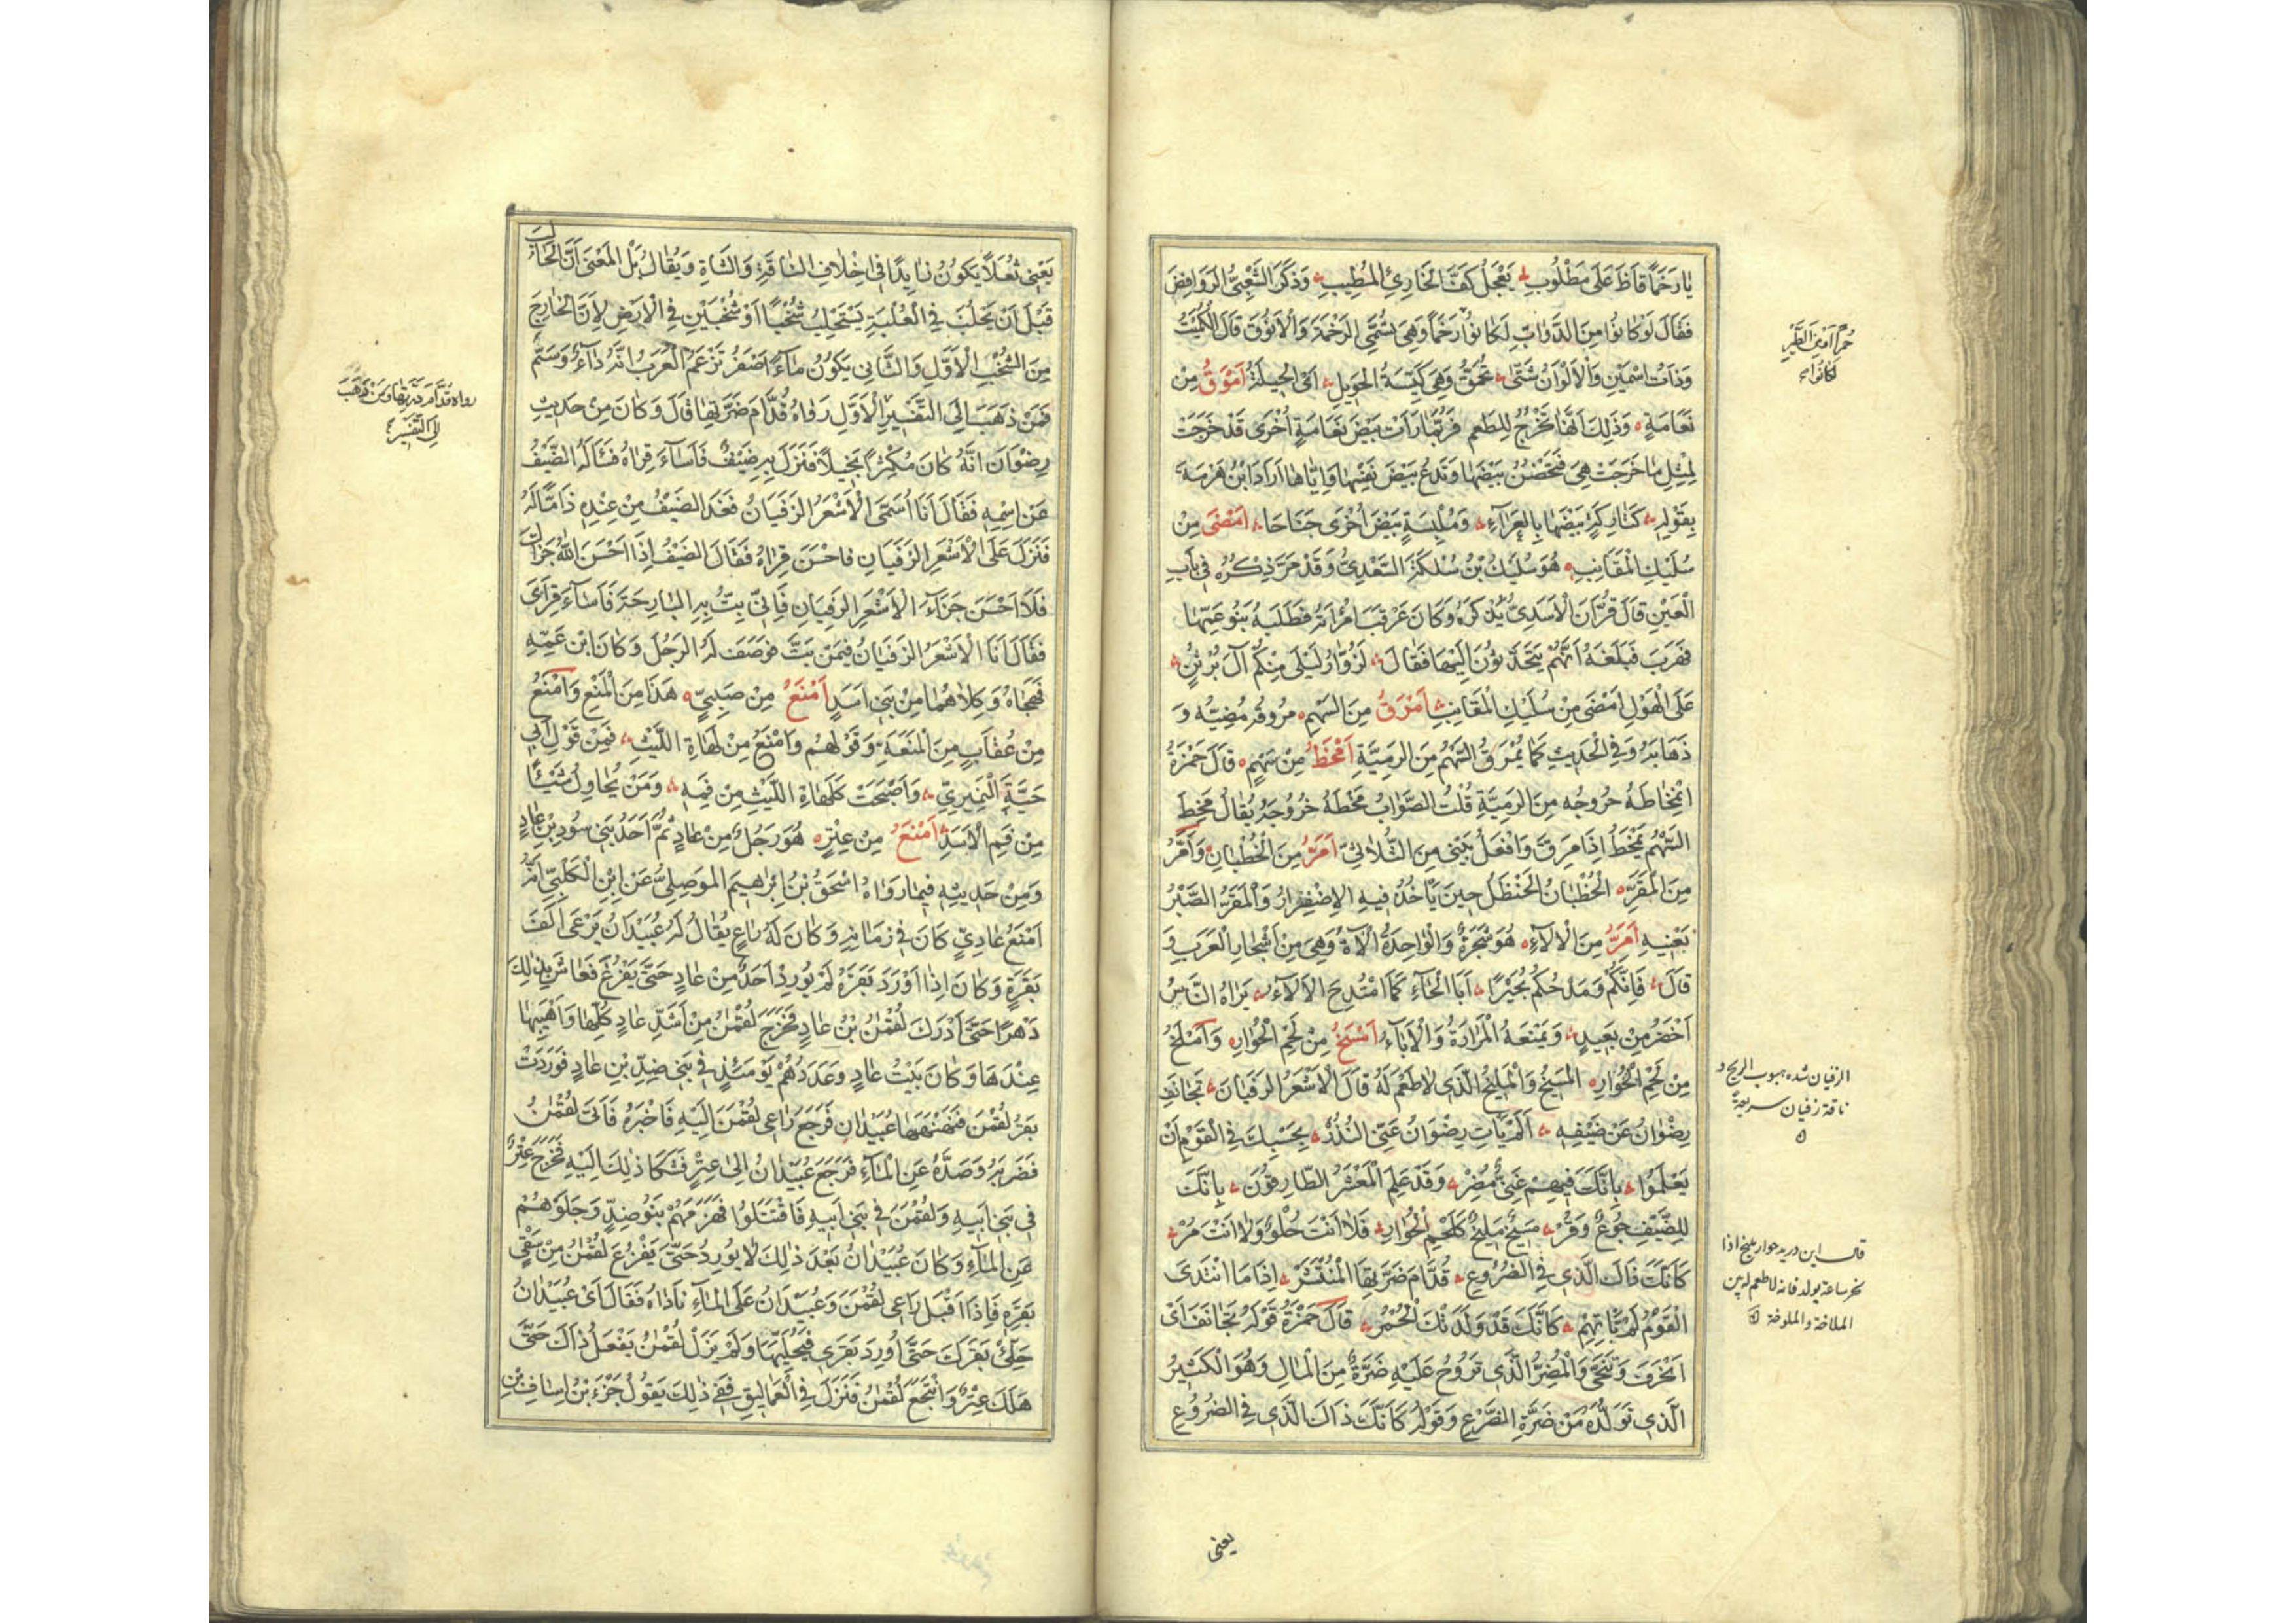 يَا رَخَمًا قَاظَ عَلَى مَطْلُوبِ يُعْجِلُ كَفَّ الْخَارِئِ الْمُطِيبِ وَذَكَرَ الشَّعْبِيُّ الرَّوَافِضَ
فَقَالَ لَوْ كَانُوا مِنَ الدَّوَابِّ لَكَانُوا رَخَمًا وَهِيَ تُسَمَّى الرَّخَمَةَ وَالْأَنُوقَ قَالَ الْكُمَيْتُ
وَذَاتُ اسْمَيْنِ وَالْأَلْوَانُ شَتَّى تُحَمَّقُ وَهِيَ كَيِّسَةُ الْحَوِيلِ أَيِ الْحِيلَةِ أَمْوَقُ مِنْ
نَعَامَةٍ وَذَلِكَ أَنَّهَا تَخْرُجُ لِلطَّعْمِ فَرُبَّمَا رَأَتْ بَيْضَ نَعَامَةٍ أُخْرَى قَدْ خَرَجَتْ
لِمِثْلِ مَا خَرَجَتْ هِيَ فَتَحْضُنُ بَيْضَهَا وَتَدَعُ بَيْضَ نَفْسِهَا وَإِيَّاهَا أَرَادَ ابْنُ هَرْمَةَ
بِقَوْلِهِ كَتَارِكَةٍ بَيْضَهَا بِالْعَرَاءِ وَمُلْبِسَةٍ بَيْضَ أُخْرَى جَنَاحَا أَمْضَى مِنْ
سُلَيْكِ الْمَقَانِبِ هُوَ سُلَيْكُ بْنُ سُلَكَةَ السَّعْدِيُّ وَقَدْ مَرَّ ذِكْرُهُ فِي بَابِ
الْعَيْنِ قَالَ قُرَّانُ الْأَسَدِيُّ يَذْكُرُهُ وَكَانَ عَرْقَبَ امْرَأَتَهُ فَطَلَبَهُ بَنُو عَمِّهَا
فَهَرَبَ فَبَلَغَهُ أَنَّهُمْ يَتَحَدَّثُونَ إِلَيْهَا فَقَالَ لَزُوَّارُ لَيْلَى مِنْكُمْ آلَ بُرْثُنٍ
عَلَى الْهَوْلِ أَمْضَى مِنْ سُلَيْكِ الْمَقَانِبِ أَمْرَقُ مِنَ السَّهْمِ مُرُوقُهُ مُضِيُّهُ وَ
ذَهَابُهُ وَفِي الْحَدِيثِ كَمَا يَمْرُقُ السَّهْمُ مِنَ الرَّمِيَّةِ أَمْخَطُ مِنْ سَهْمٍ قَالَ حَمْزَةُ
امْتِخَاطُهُ خُرُوجُهُ مِنَ الرَّمِيَّةِ قُلْتُ الصَّوَابُ مَخْطُهُ خُرُوجُهُ يُقَالُ مَخَطَ
السَّهْمُ يَمْخَطُ إِذَا مَرَقَ وَأَفْعَلُ يُبْنَى مِنَ الثُّلَاثِيِّ أَمَرُّ مِنَ الْخُطْبَانِ وَأَمَرُّ
مِنَ الْمَقِرِ الْخُطْبَانُ الْحَنْظَلُ حِينَ يَأْخُذُ فِيهِ الِاصْفِرَارُ وَالْمَقِرُ الصَّبْرُ
بِعَيْنِهِ أَمَرُّ مِنَ الْأَلَاءِ هُوَ شَجَرَةٌ وَالْوَاحِدَةُ أَلَاءَةٌ وَهِيَ مِنْ أَشْجَارِ الْعَرَبِ وَ
قَالَ فَإِنَّكُمْ وَمَدْحُكُمْ بُجَيْرًا أَبَا لَجَأٍ كَمَا امْتُدِحَ الْأَلَاءُ يَرَاهُ النَّاسُ
أَخْضَرَ مِنْ بَعِيدٍ وَيَمْنَعُهُ الْمَرَارَةُ وَالْإِبَاءُ أَمْسَخُ مِنْ لَحْمِ الْحُوَارِ وَأَمْلَخُ
مِنْ لَحْمِ الْحُوَارِ الْمَسِيخُ وَالْمَلِيخُ الَّذِي لَا طَعْمَ لَهُ قَالَ الْأَشْعَرُ الزَّفَيَانُ تَجَانَفَ
رِضْوَانُ عَنْ ضَيْفِهِ أَلَمْ يَأْتِ رِضْوَانَ عَنِّي النُّذُرْ بِحَسْبِكَ فِي الْقَوْمِ أَنْ
يَعْلَمُوا بِأَنَّكَ فِيهِمْ غَنِيٌّ مُضِرْ وَقَدْ عَلِمَ الْمَعْشَرُ الطَّارِقُونَ بِأَنَّكَ
لِلضَّيْفِ جُوعٌ وَقُرْ مَسِيخٌ مَلِيخٌ كَلَحْمِ الْحُوَارِ فَلَا أَنْتَ حُلْوٌ وَلَا أَنْتَ مُرْ
كَأَنَّكَ ذَاكَ الَّذِي فِي الضُّرُوعِ قُدَّامَ ضَرَّتِهَا الْمُنْتَشِرْ إِذَا مَا انْتَدَى
الْقَوْمُ لَمْ تَأْتِهِمْ كَأَنَّكَ قَدْ وَلَدَتْكَ الْحُمُرْ قَالَ حَمْزَةُ قَوْلُهُ تَجَانَفَ أَيْ
انْحَرَفَ وَتَنَحَّى وَالْمُضِرُّ الَّذِي تَرُوحُ عَلَيْهِ ضَرَّةٌ مِنَ الْمَالِ وَهُوَ الْكَثِيرُ
الَّذِي تَوَلُّدُهُ مِنْ ضَرَّةِ الضَّرْعِ وَقَوْلُهُ كَأَنَّكَ ذَاكَ الَّذِي فِي الضُّرُوعِ
لكانوا
الزفيان شده هبوب الريح و
ناقة زفيان سريعة
قال ابن دريد حوار مليخ اذا
نحر ساعة يولد فانه لا طعم له بين
الملاخة والملوخة
يعنى
يَعْنِي ثُعْلًا يَكُونُ زَايِدًا فِي أَخْلَافِ النَّاقَةِ وَالشَّاةِ وَيُقَالُ بَلِ الْمَعْنَى أَنَّ الْحَالِبَ
قَبْلَ أَنْ يَحْلُبَ فِي الْعُلْبَةِ يَسْتَحْلِبُ شُخْبًا أَوْ شُخْبَيْنِ فِي الْأَرْضِ لِأَنَّ الْخَارِجَ
مِنَ الشُّخْبِ الْأَوَّلِ وَالثَّانِي يَكُونُ مَاءً أَصْفَرَ تَزْعُمُ الْعَرَبُ أَنَّهُ دَاءٌ وَسَمٌّ
فَمَنْ ذَهَبَ إِلَى التَّفْسِيرِ الْأَوَّلِ رَوَاهُ قُدَّامَ ضَرَّتِهَا قَالَ وَكَانَ مِنْ حَدِيثِ
رِضْوَانَ أَنَّهُ كَانَ مُكْثِرًا بَخِيلًا فَنَزَلَ بِهِ ضَيْفٌ فَأَسَاءَ قِرَاهُ فَسَأَلَهُ الضَّيْفُ
عَنِ اسْمِهِ فَقَالَ أَنَا أُسَمَّى الْأَشْعَرَ الزَّفَيَانَ فَغَدَا الضَّيْفُ مِنْ عِنْدِهِ ذَامًّا لَهُ
فَنَزَلَ عَلَى الْأَشْعَرِ الزَّفَيَانِ فَأَحْسَنَ قِرَاهُ فَقَالَ الضَّيْفُ إِذَا أَحْسَنَ اللَّهُ جَزَاكَ
فَلَا أَحْسَنَ جَزَاءَ الْأَشْعَرِ الزَّفَيَانِ فَإِنِّي بِتُّ بِهِ الْبَارِحَةَ فَأَسَاءَ قِرَايَ
فَقَالَ أَنَا الْأَشْعَرُ الزَّفَيَانُ فَبِمَنْ بِتَّ فَوَصَفَ لَهُ الرَّجُلَ وَكَانَ ابْنَ عَمِّهِ
فَهَجَاهُ وَكِلَاهُمَا مِنْ بَنِي أَسَدٍ أَمْنَعُ مِنْ صَبِيٍّ هَذَا مِنَ الْمَنْعِ وَأَمْنَعُ
مِنْ عُقَابٍ مِنَ الْمَنَعَةِ وَقَوْلُهُمْ وَأَمْنَعُ مِنْ لَهَاةِ اللَّيْثِ فَمِنْ قَوْلِ أَبِي
حَيَّةَ النُّمَيْرِيِّ وَأَصْبَحَتْ كَلَهَاةِ اللَّيْثِ مِنْ فَمِهِ وَمَنْ يُحَاوِلُ شَيْئًا
مِنْ فَمِ الْأَسَدِ أَمْنَعُ مِنْ عِتْرٍ هُوَ رَجُلٌ مِنْ عَادٍ ثُمَّ أَحَدُ بَنِي سُودِ بْنِ عَادٍ
وَمِنْ حَدِيثِهِ فِيمَا رَوَاهُ إِسْحَقُ بْنُ إِبْرَاهِيمَ الْمَوْصِلِيُّ عَنِ ابْنِ الْكَلْبِيِّ أَنَّهُ
أَمْنَعُ عَادِيٍّ كَانَ فِي زَمَانِهِ وَكَانَ لَهُ رَاعٍ يُقَالُ لَهُ عُبَيْدَانُ يَرْعَى أَلْفَ
بَقَرَةٍ وَكَانَ إِذَا أَوْرَدَ بَقَرَهُ لَمْ يُورِدْ أَحَدٌ مِنْ عَادٍ حَتَّى يَفْرُغَ فَعَاشَ بِذَلِكَ
دَهْرًا حَتَّى أَدْرَكَ لُقْمَنُ بْنُ عَادٍ فَخَرَجَ لُقْمَنُ مِنْ أَشَدِّ عَادٍ كُلِّهَا وَأَهْيَبِهَا
عِنْدَهَا وَكَانَ بَيْتُ عَادٍ وَعَدَدُهُمْ يَوْمَئِذٍ فِي بَنِي ضِدِّ بْنِ عَادٍ فَوَرَدَتْ
بَقَرُ لُقْمَنَ فَنَهْنَهَهَا عُبَيْدَانُ فَرَجَعَ رَاعِي لُقْمَنَ إِلَيْهِ فَأَخْبَرَهُ فَأَتَى لُقْمَنُ
فَضَرَبَهُ وَصَدَّهُ عَنِ الْمَاءِ فَرَجَعَ عُبَيْدَانُ إِلَى عِتْرٍ فَشَكَا ذَلِكَ إِلَيْهِ فَخَرَجَ عِتْرٌ
فِي بَنِي أَبِيهِ وَلُقْمَنُ فِي بَنِي أَبِيهِ فَاقْتَتَلُوا فَهَزَمَهُمْ بَنُو ضِدٍّ وَجَلَوْهُمْ
عَنِ الْمَاءِ وَكَانَ عُبَيْدَانُ بَعْدَ ذَلِكَ لَا يُورِدُ حَتَّى يَفْرُغَ لُقْمَنُ مِنْ سَقْيِ
بَقَرِهِ فَإِذَا أَقْبَلَ رَاعِي لُقْمَنَ وَعُبَيْدَانُ عَلَى الْمَاءِ نَادَاهُ فَقَالَ أَيْ عُبَيْدَانُ
حَلِّئْ بَقَرَكَ حَتَّى أُورِدَ بَقَرِي فَيُحَلِّيهَا وَلَمْ يَزَلْ لُقْمَنُ يَفْعَلُ ذَاكَ حَتَّى
هَلَكَ عِتْرٌ وَانْتَجَعَ لُقْمَنُ فَنَزَلَ فِي الْعَمَالِيقِ فَفِي ذَلِكَ يَقُولُ جَزْءُ بْنُ إِسَافِ بْنِ
رواه قدام درتها ومن ذهب
الى التفسير